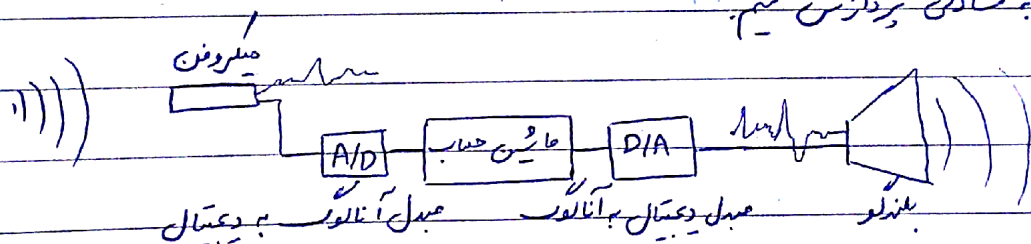 به سادگی پردازش کنیم.
میکروفن
A/D ماشین حساب D/A
مبدل آنالوگ به دیجیتال مبدل دیجیتال به آنالوگ بلندگو